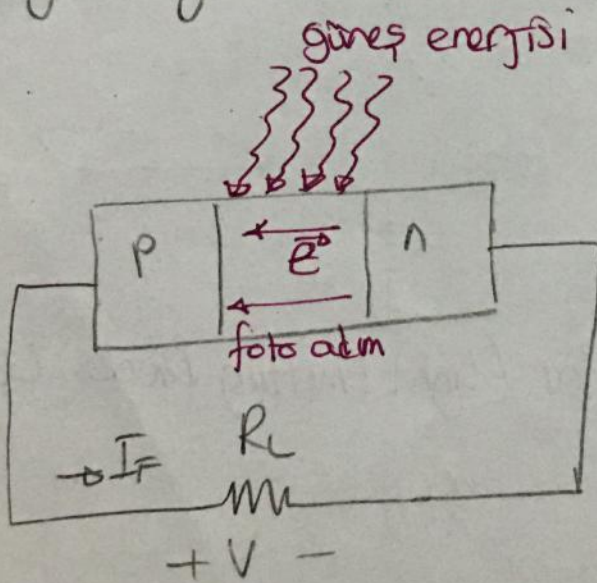 güneş enerjisi
p e n
foto akım
R_L
I_F
+ V -